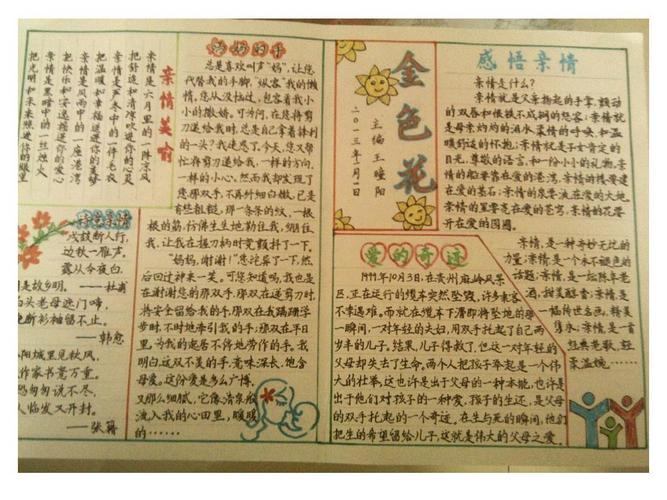 亲情美喻
亲情是六月里的一阵凉风
把舒适和清凉吹进你的心灵
亲情是严冬中的一件毛衣
把温暖和幸福送进你的
亲情是风雨中的一座港湾
把快乐和安逸送进你的爱心
亲情是黑暗中的一丝烛火
把光明和未来照进你的眼里
诗意亲情
戍鼓断人行,
边秋一雁声。
露从今夜白,
是故乡明。——杜甫
头老母遮门啼,
断衫袖留不止。
——韩愈
阳城里见秋风,
作家书意万重。
恐匆匆说不尽,
人临发又开封。
——张籍
妈妈的手
总是喜欢叫声“妈”,让您
代替我的手脚,“纵容”我的懒
惰。您从没怪过,包容着我小
小的撒娇。可为何,在您将剪
刀递给我时,总是自己拿着锋利
的一头?我迷惑了。今天,您又帮
忙将剪刀递给我,一样的方向,
一样的小心。然而我却发现了
您那双手,不再纤细白嫩,已是
有些粗糙,那一条条的纹,一根
根的筋,仿佛生生地勒住我,绑住
我,让我在握刀柄时竟颤抖了一下。
“妈妈,谢谢!”您诧异了一下,然
后回过神来一笑。可您知道吗,我也是
在谢谢您的那双手,那双在递剪刀时
将安全留给我的手,那双在我蹒跚学
步时,不时地牵引我的手;那双在平日
里,为我的起居不停地劳作的手。我
明白,这双不美的手,意味深长,饱含
母爱。这份爱是多么广博,
又那么细腻,它像清泉般
流入我的心田里,暖暖
的……
金色花
主编 王曈阳
二〇一三年一月一日
感悟亲情
亲情是什么?
亲情就是父亲扬起的手掌,颤动
的双唇和恨铁不成钢的怨容;亲情就
是母亲灼灼的泪水,柔情的呼唤和温
暖舒适的怀抱;亲情就是子女肯定的
目光,尊敬的语言,和一份小小的礼物。亲
情的船要靠在爱的港湾,亲情的楼要建
在爱的基石;亲情的泉要流在爱的大地,
亲情的星要亮在爱的苍穹,亲情的花要
开在爱的园圃。
亲情,是一种奇妙无比的
力量;亲情是一个永不褪色的
话题;亲情,是一坛陈年老
酒,甜美醇香;亲情是
一幅传世名画,精美
隽永;亲情,是一首
经典老歌,轻
柔温婉……
爱的奇迹
1999年10月3日,在贵州麻岭风景
区,正在运行的缆车突然坠毁,许多乘客
不幸遇难。而就在缆车下滑即将坠地的
一瞬间,一对年轻的夫妇,用双手托起了自己两
岁半的儿子。结果,儿子得救了,但这一对年轻的
父母却失去了生命。两个人把孩子举起是一个伟
大的壮举,这也许是出于父母的一种本能,也许是
出于他们对孩子的一种爱,孩子的生还,是父母
的双手托起的一个奇迹。在生与死的瞬间,他们
把生的希望留给儿子,这就是伟大的父母之爱。